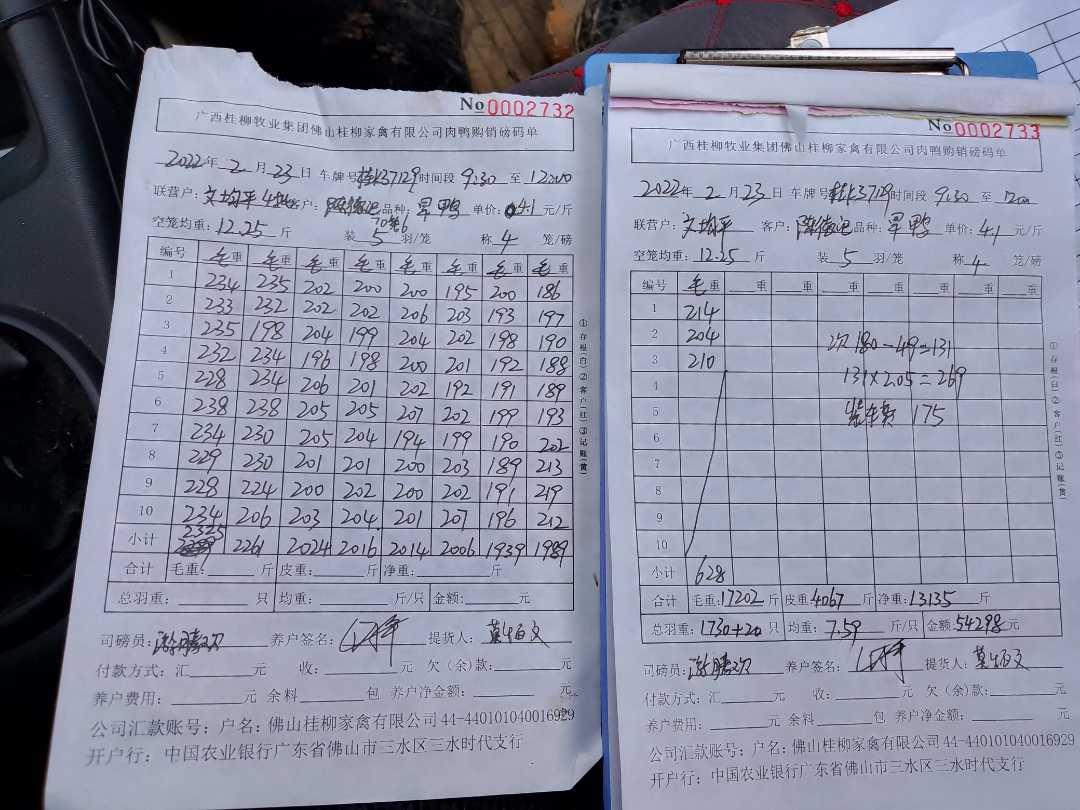 No 0002732
广西桂柳牧业集团佛山桂柳家禽有限公司肉鸭购销磅码单
2022年 2月 23日 车牌号 37129 时间段 9:30 至 12:00
联营户: 文均平 客户: 陈德记 品种: 旱鸭 单价: 4.1元/斤
空笼均重: 12.25 斤 装 5 羽/笼 称 4 笼/磅
编号 毛重 毛重 毛重 毛重 毛重 毛重 毛重 毛重
1 234 235 202 200 200 195 200 186
2 233 232 202 202 206 203 193 197
3 235 198 204 199 204 202 198 190
4 232 234 196 198 200 201 192 188
5 228 234 206 201 202 192 191 189
6 238 238 205 205 207 202 199 193
7 234 230 205 204 194 199 190 202
8 229 230 201 201 200 203 189 213
9 228 224 200 202 200 202 191 219
10 234 206 203 204 201 207 196 212
小计 2325 2261 2024 2016 2014 2006 1939 1989
合计 毛重: 斤 皮重: 斤 净重: 斤
总羽重: 只 均重: 斤/只 金额: 元
司磅员: 养户签名: 提货人:
付款方式: 汇 元 收: 元 欠(余)款: 元
养户费用: 元 余料 包 养户净金额: 元
公司汇款账号: 户名: 佛山桂柳家禽有限公司 44-440101040016929
开户行: 中国农业银行广东省佛山市三水区三水时代支行
①存根(白)②客户(红)③记账(黄)
No 0002733
广西桂柳牧业集团佛山桂柳家禽有限公司肉鸭购销磅码单
2022年 2月 23日 车牌号 37129 时间段 9:30 至
联营户: 文均平 客户: 陈德记 品种: 旱鸭 单价: 4.1 元/斤
空笼均重: 12.25 斤 装 5 羽/笼 称 4 笼/磅
编号 毛重 重 重 重 重 重 重 重
1 214
2 204 次180-49=131
3 210
4 131×2.05=269
5 装车费 175
6
7
8
9
10
小计 628
合计 毛重: 17202斤 皮重: 4067斤 净重: 13135斤
总羽重: 1730+20只 均重: 7.59 斤/只 金额: 54298元
司磅员: 养户签名: 提货人:
付款方式: 汇 元 收: 元 欠(余)款: 元
养户费用: 元 余料 包 养户净金额: 元
公司汇款账号: 户名: 佛山桂柳家禽有限公司 44-440101040016929
开户行: 中国农业银行广东省佛山市三水区三水时代支行
①存根(白)②客户(红)③记账(黄)